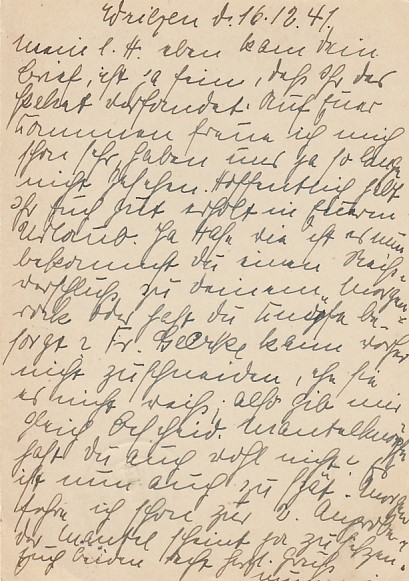 Wriezen d. 16.12.41.
Mein l. H. eben kam Dein
Brief, ist ja fein, daß Ihr das
Paket vorfandet. Auf Euer
Kommen freue ich mich
schon sehr, haben uns ja so lange
nicht gesehen. Hoffentlich habt
Ihr Euch gut erholt in Euerm
Urlaub. Ja wie ist es nun
bekommst Du einen Reiß-
verschluß zu Deinem Morgen-
rock oder hast Du Knöpfe be-
sorgt? Fr. kann vorher
nicht zuschneiden, ehe sie
es nicht weiß, also gib mir
gleich Bescheid. Mantelknöpfe
hast Du auch wohl nicht? Es
ist nun auch zu spät. Morgen
fahre ich schon zur 2. Anprobe.
Der Mantel scheint ja zu sitzen.
Euch beiden recht herzl. Grüße